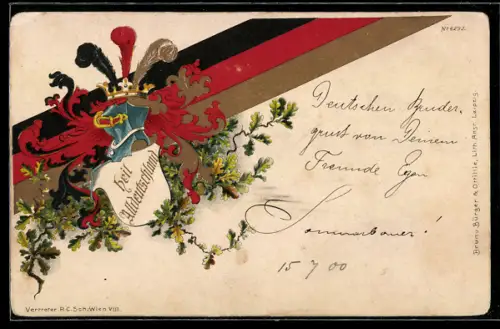 Nº 6292.
Deutschen Bruder-
gruß von Deinem
Freunde Egon
Sommerbauer!
15 7 00
Heil
Alldeutschland!
Bruno Bürger & Ottillie, Lith. Anst. Leipzig.
Vertreter R.C. Soh. Wien VIII.